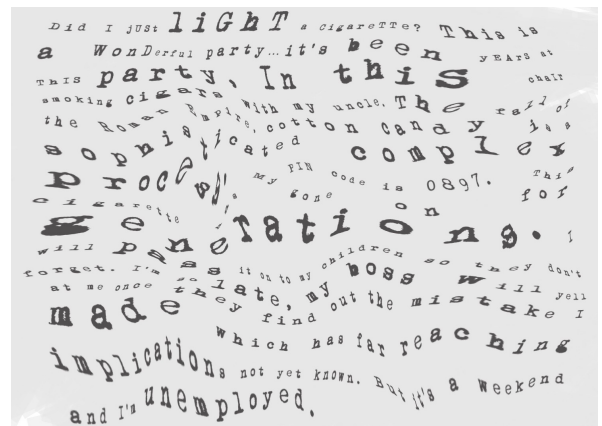 Did I jUSt liGHT a cigareTTe? This is
a WonDerful party...it's been yEARs at
THIS party. In this chair
smoking cigars with my uncle. The fall of
the Roman Empire, cotton candy is a
sophisticated complex
process. My PIN code is 0897. This
cigarette 's gone on for
generations. I
will pass it on to my children so they don't
forget. I'm so late, my boss will yell
at me once they find out the mistake I
made which has far reaching
implications not yet known. But it's a weekend
and I'm unemployed.